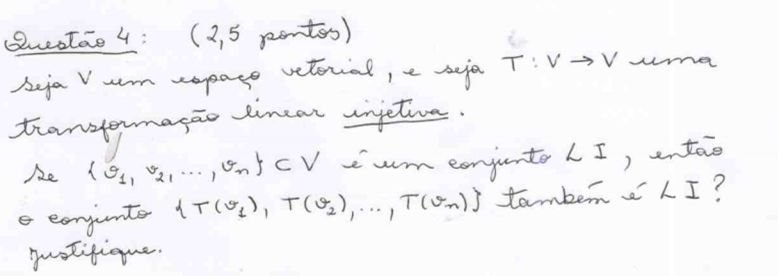 Questão 4: (2,5 pontos)
Seja V um espaço vetorial, e seja T: V → V uma
transformação linear injetiva.
Se {v₁, v₂, ..., vₙ} ⊂ V é um conjunto LI, então
o conjunto {T(v₁), T(v₂), ..., T(vₙ)} também é LI?
Justifique.